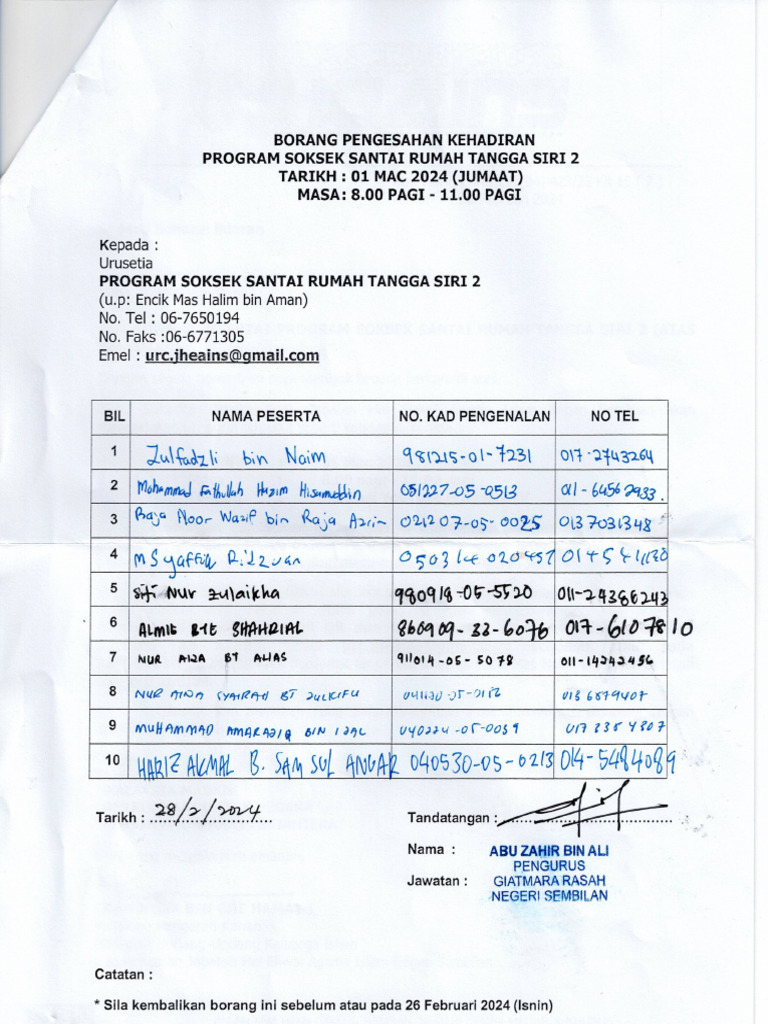 BORANG PENGESAHAN KEHADIRAN
PROGRAM SOKSEK SANTAI RUMAH TANGGA SIRI 2
TARIKH : 01 MAC 2024 (JUMAAT)
MASA : 8.00 PAGI - 11.00 PAGI
Kepada :
Urusetia
PROGRAM SOKSEK SANTAI RUMAH TANGGA SIRI 2
(u.p: Encik Mas Halim bin Aman)
No. Tel : 06-7650194
No. Faks :06-6771305
Emel : urc.jheains@gmail.com
BIL NAMA PESERTA NO. KAD PENGENALAN NO TEL
1 Zulfadzli bin Naim 981215-01-7231 017-2743264
2 Mohammad Fathullah Hazim Hisamuddin 051227-05-0513 011-64562933.
3 Raja Noor Wazif bin Raja Azrin 021207-05-0025 0137031348
4 M Syaffiq Ridzuan 050314020457
5 Siti Nur Zulaikha 980918-05-5520 011-24386243
6 ALMIE BTE SHAHRIAL 860909-33-6076 017-6107810
7 NUR AIZA BT ALIAS 911014-05-5078 011-14242456
8 NUR AINA SYAIRAH BT ZULKIFLI 0136879407
9 MUHAMMAD BIN 040224-05-0039 0173354307
10 HARIZ AKMAL B. SAMSUL ANUAR 040530-05-0213 014-5484089
Tarikh : 28/2/2024 Tandatangan :
Nama : ABU ZAHIR BIN ALI
PENGURUS
Jawatan : GIATMARA RASAH
NEGERI SEMBILAN
Catatan :
* Sila kembalikan borang ini sebelum atau pada 26 Februari 2024 (Isnin)